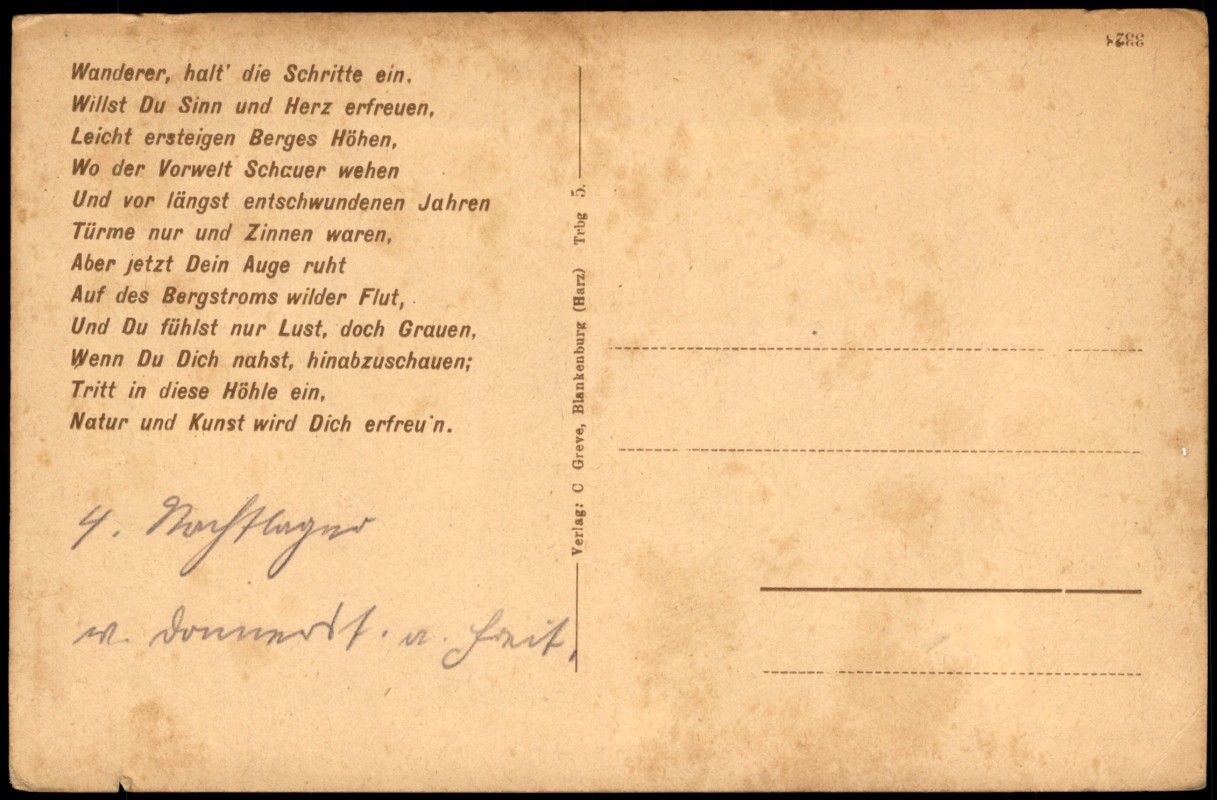 Wanderer, halt' die Schritte ein.
Willst Du Sinn und Herz erfreuen,
Leicht ersteigen Berges Höhen,
Wo der Vorwelt Schauer wehen
Und vor längst entschwundenen Jahren
Türme nur und Zinnen waren,
Aber jetzt Dein Auge ruht
Auf des Bergstroms wilder Flut,
Und Du fühlst nur Lust, doch Grauen,
Wenn Du Dich nahst, hinabzuschauen;
Tritt in diese Höhle ein,
Natur und Kunst wird Dich erfreu'n.
4. Nachtlager
v. Donnerst. a. Freit.
Verlag: C Greve, Blankenburg (Harz) Trbg 5.